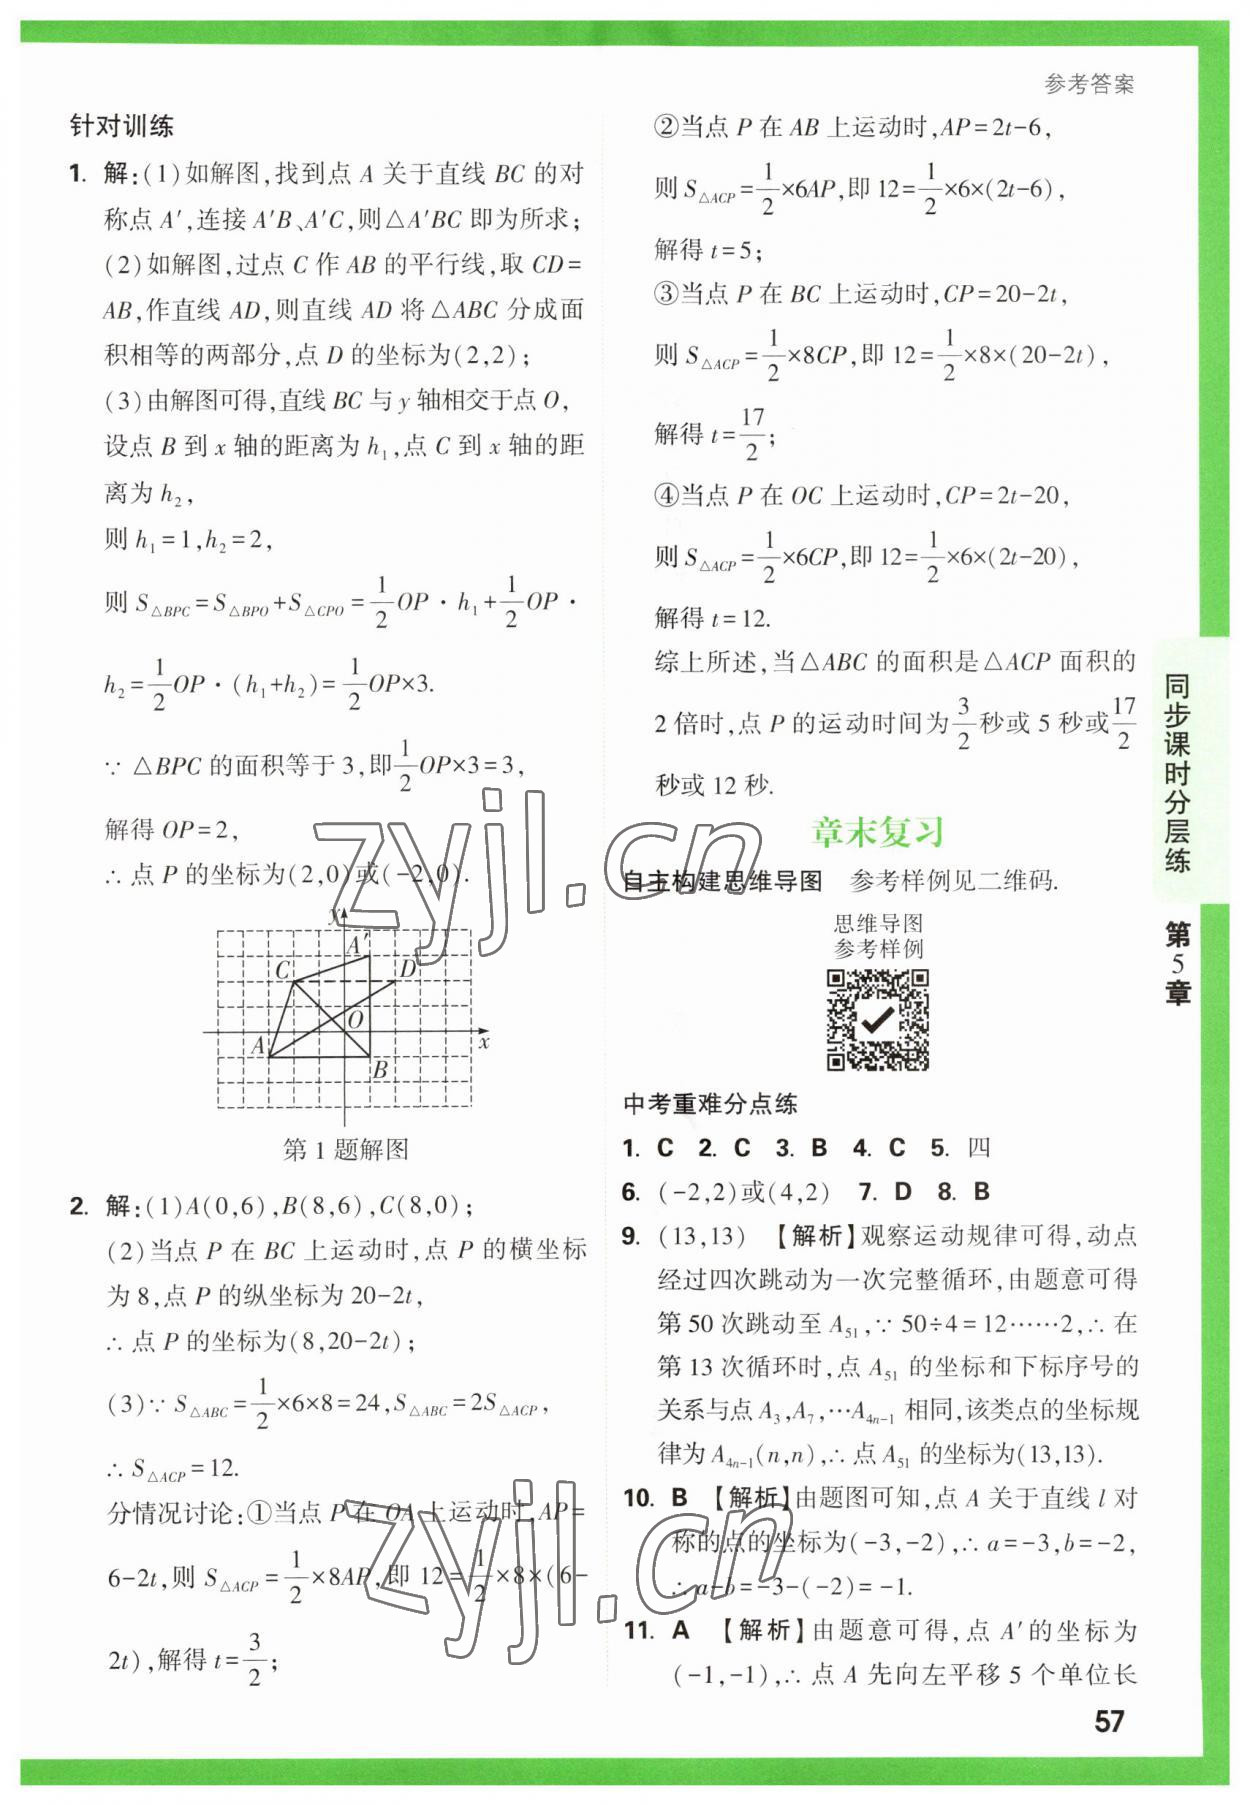 参考答案
针对训练
1. 解:(1)如解图,找到点 A 关于直线 BC 的对
称点 A′,连接 A′B、A′C,则△A′BC 即为所求;
(2)如解图,过点 C 作 AB 的平行线,取 CD=
AB,作直线 AD,则直线 AD 将△ABC 分成面
积相等的两部分,点 D 的坐标为(2,2);
(3)由解图可得,直线 BC 与 y 轴相交于点 O,
设点 B 到 x 轴的距离为 h₁,点 C 到 x 轴的距
离为 h₂,
则 h₁=1,h₂=2,
则 S△BPC=S△BPO+S△CPO=1/2 OP·h₁+1/2 OP·
h₂=1/2 OP·(h₁+h₂)=1/2 OP×3.
∵△BPC 的面积等于 3,即 1/2 OP×3=3,
解得 OP=2,
∴点 P 的坐标为(2,0)或(-2,0).
y
A′
C
D
O
A
x
B
第 1 题解图
2. 解:(1)A(0,6),B(8,6),C(8,0);
(2)当点 P 在 BC 上运动时,点 P 的横坐标
为 8,点 P 的纵坐标为 20-2t,
∴点 P 的坐标为(8,20-2t);
(3)∵S△ABC=1/2×6×8=24,S△ABC=2S△ACP,
∴S△ACP=12.
分情况讨论:①当点 P 在 OA 上运动时,AP=
6-2t,则 S△ACP=1/2×8AP,即 12=1/2×8×(6-
2t),解得 t=3/2;
②当点 P 在 AB 上运动时,AP=2t-6,
则 S△ACP=1/2×6AP,即 12=1/2×6×(2t-6),
解得 t=5;
③当点 P 在 BC 上运动时,CP=20-2t,
则 S△ACP=1/2×8CP,即 12=1/2×8×(20-2t),
解得 t=17/2;
④当点 P 在 OC 上运动时,CP=2t-20,
则 S△ACP=1/2×6CP,即 12=1/2×6×(2t-20),
解得 t=12.
综上所述,当△ABC 的面积是△ACP 面积的
2 倍时,点 P 的运动时间为 3/2 秒或 5 秒或 17/2
秒或 12 秒.
章末复习
自主构建思维导图 参考样例见二维码.
思维导图
参考样例
中考重难分点练
1. C 2. C 3. B 4. C 5. 四
6. (-2,2)或(4,2) 7. D 8. B
9. (13,13) 【解析】观察运动规律可得,动点
经过四次跳动为一次完整循环,由题意可得
第 50 次跳动至 A₅₁,∵50÷4=12……2,∴在
第 13 次循环时,点 A₅₁ 的坐标和下标序号的
关系与点 A₃,A₇,…A₄ₙ₋₁ 相同,该类点的坐标规
律为 A₄ₙ₋₁(n,n),∴点 A₅₁ 的坐标为(13,13).
10. B 【解析】由题图可知,点 A 关于直线 l 对
称的点的坐标为(-3,-2),∴a=-3,b=-2,
∴a-b=-3-(-2)=-1.
11. A 【解析】由题意可得,点 A′的坐标为
(-1,-1),∴点 A 先向左平移 5 个单位长
同步课时分层练
第5章
57
zyjl.cn
zyjl.cn